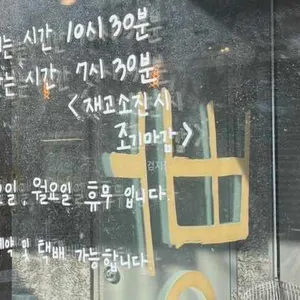 는 시간 10시30분
는 시간 7시30분
<재고소진시
조기마감>
요일, 월요일 휴무 입니다.
및 택배 가능합니다